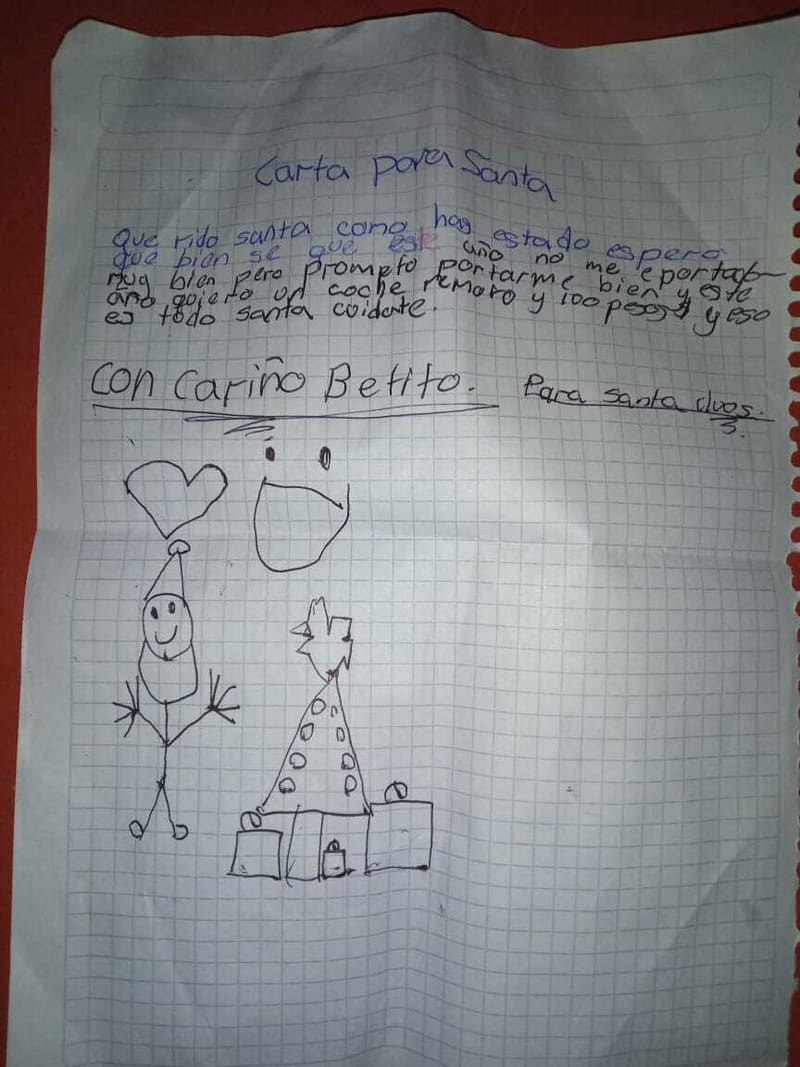 Carta para Santa
Que rido santa como has estado espero
que bien se que este año no me e portado
muy bien pero prometo portarme bien y este
año quiero un coche remoto y 100 pesos y eso
es todo santa cuidate.
Con Cariño Betito.
Para santa cluos.